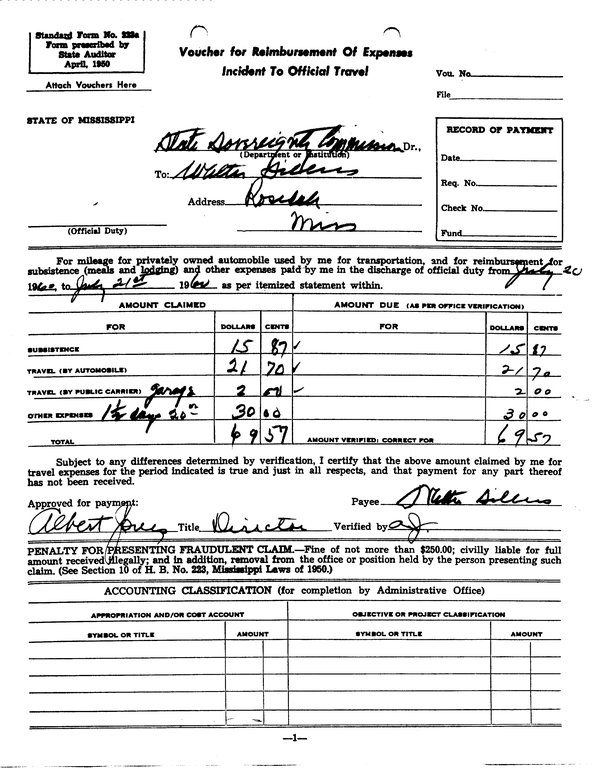 Standard Form No. 223a
Form prescribed by
State Auditor
April, 1950
Attach Vouchers Here
Voucher for Reimbursement Of Expenses
Incident To Official Travel
Vou. No.
File
STATE OF MISSISSIPPI
State Sovereignty Commission Dr.,
(Department or Institution)
To: Walter Sillers
Address Rosedale
Miss
(Official Duty)
RECORD OF PAYMENT
Date
Req. No.
Check No.
Fund
For mileage for privately owned automobile used by me for transportation, and for reimbursement for
subsistence (meals and lodging) and other expenses paid by me in the discharge of official duty from July 20
1960, to July 21st 1960 as per itemized statement within.
AMOUNT CLAIMED AMOUNT DUE (AS PER OFFICE VERIFICATION)
FOR DOLLARS CENTS FOR DOLLARS CENTS
SUBSISTENCE 15 87 ✓ 15 87
TRAVEL (BY AUTOMOBILE) 21 70 ✓ 21 70
TRAVEL (BY PUBLIC CARRIER) garage 2 00 ✓ 2 00
OTHER EXPENSES 1½ days 20 30 00 30 00
TOTAL 69 57 AMOUNT VERIFIED; CORRECT FOR 69 57
Subject to any differences determined by verification, I certify that the above amount claimed by me for
travel expenses for the period indicated is true and just in all respects, and that payment for any part thereof
has not been received.
Approved for payment: Payee Walter Sillers
Albert Jones Title Director Verified by aJ.
PENALTY FOR PRESENTING FRAUDULENT CLAIM.—Fine of not more than $250.00; civilly liable for full
amount received illegally; and in addition, removal from the office or position held by the person presenting such
claim. (See Section 10 of H. B. No. 223, Mississippi Laws of 1950.)
ACCOUNTING CLASSIFICATION (for completion by Administrative Office)
APPROPRIATION AND/OR COST ACCOUNT OBJECTIVE OR PROJECT CLASSIFICATION
SYMBOL OR TITLE AMOUNT SYMBOL OR TITLE AMOUNT
—1—